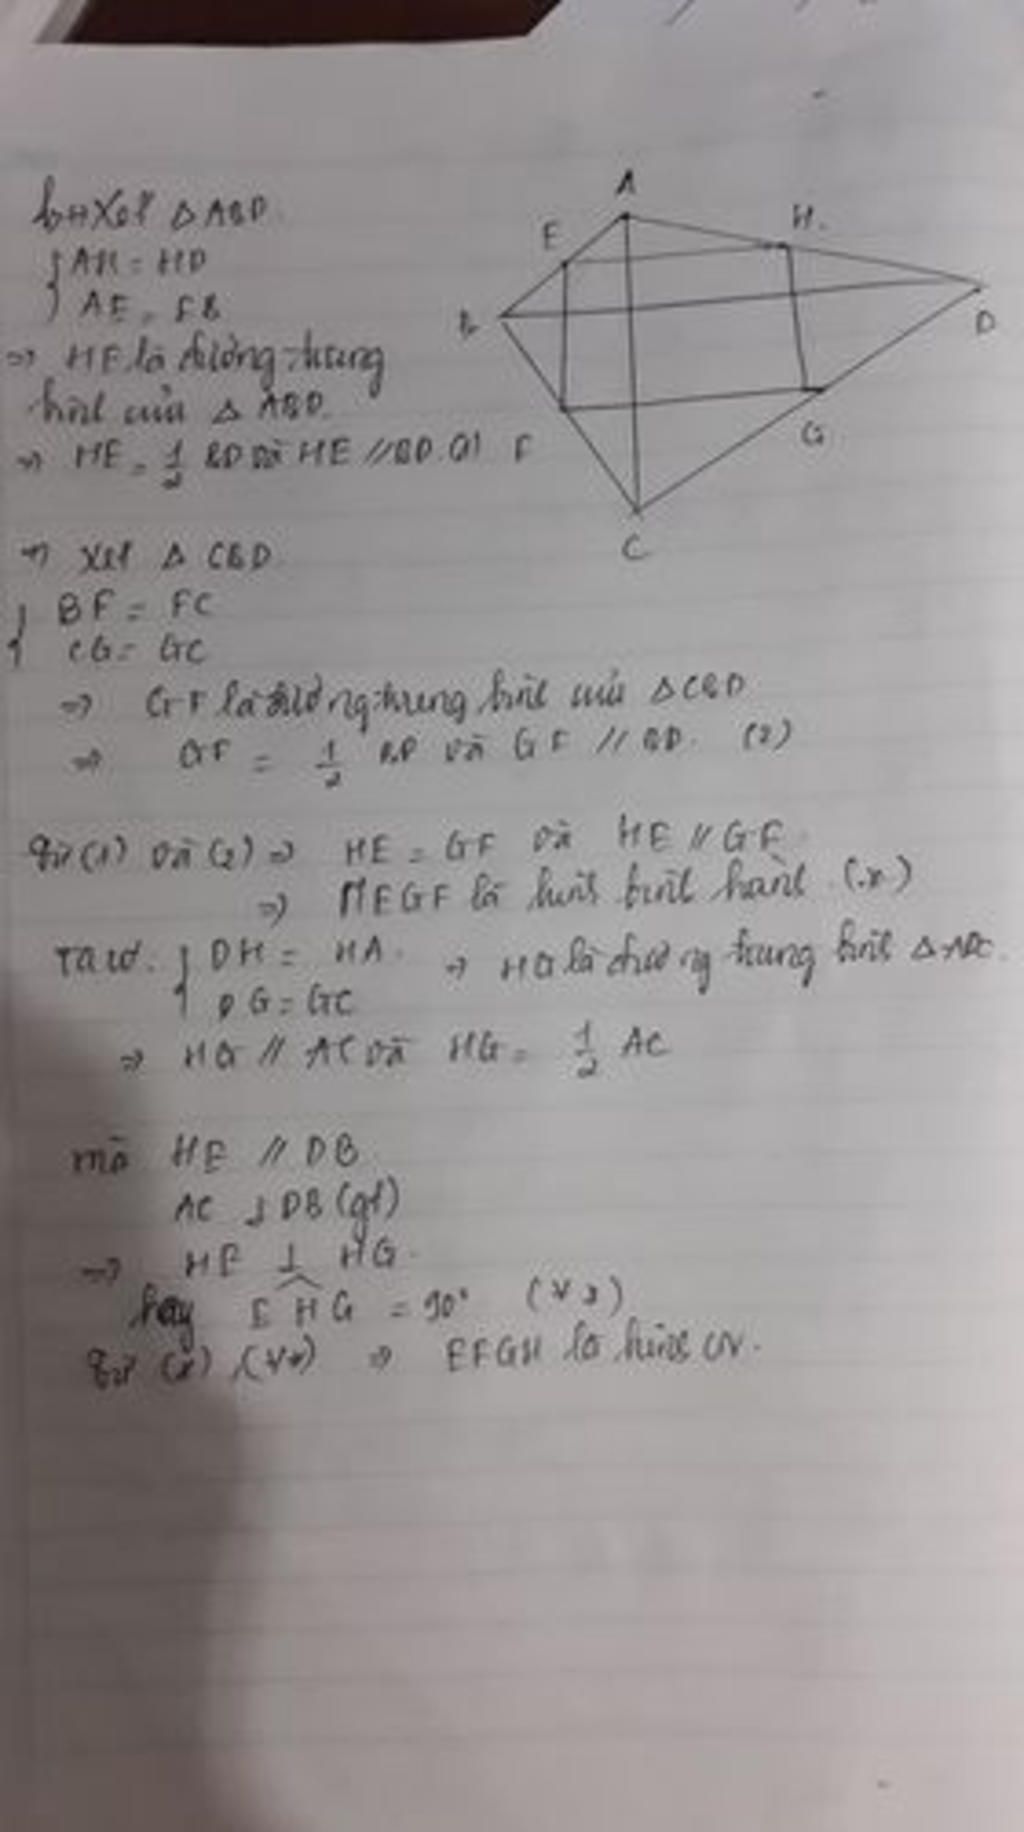 b, + Xét △ ABD
{ AH = HD
AE = EB
=> HE là đường trung
bình của △ ABD.
=> HE = 1/2 BD và HE // BD (1)
A
E
H.
B
D
F
G
C
=> Xét △ CBD
{ BF = FC
CG = GC
=> GF là đường trung bình của △CBD
=> GF = 1/2 BD và GF // BD. (2)
Từ (1) và (2) => HE = GF và HE // GF
=> HEGF là hình bình hành (*)
Ta có. { DH = HA. => HG là đường trung bình △ ADC.
DG = GC
=> HG // AC và HG = 1/2 AC
mà HE // DB
AC ⊥ DB (gt)
=> HE ⊥ HG.
hay EHG = 90°
Từ (*), => EFGH là hình CN.